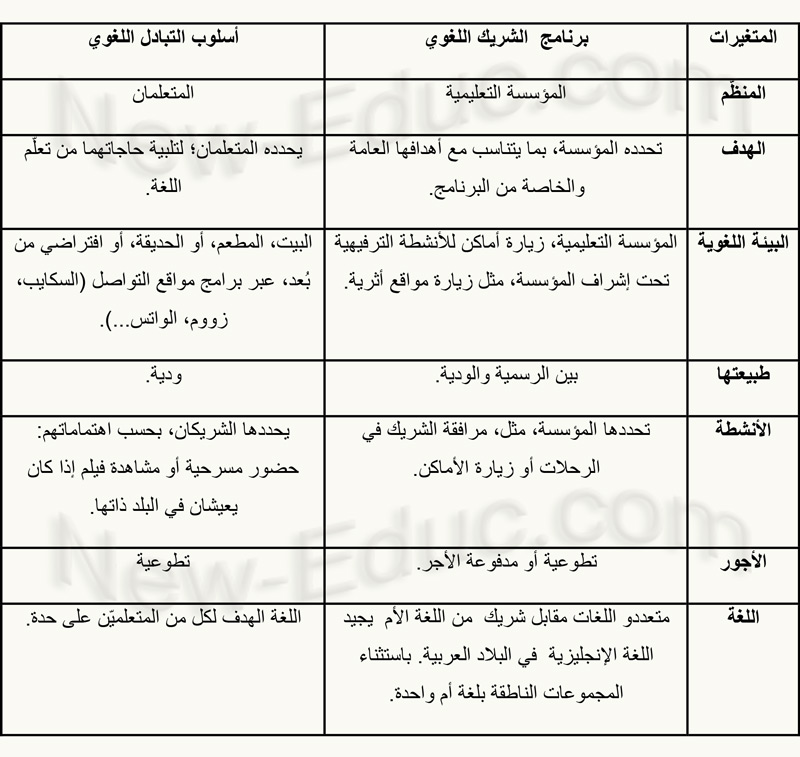 المتغيرات
برنامج الشريك اللغوي
أسلوب التبادل اللغوي
المنظّم
المؤسسة التعليمية
المتعلمان
الهدف
تحدده المؤسسة، بما يتناسب مع أهدافها العامة
والخاصة من البرنامج.
يحدده المتعلمان؛ لتلبية حاجاتهما من تعلّم
اللغة.
البيئة اللغوية
المؤسسة التعليمية، زيارة أماكن للأنشطة الترفيهية
تحت إشراف المؤسسة، مثل زيارة مواقع أثرية.
البيت، المطعم، أو الحديقة، أو افتراضي من
بُعد، عبر برامج مواقع التواصل (السكايب،
زووم، الواتس...).
طبيعتها
بين الرسمية والودية.
ودية.
الأنشطة
تحددها المؤسسة، مثل، مرافقة الشريك في
الرحلات أو زيارة الأماكن.
يحددها الشريكان، بحسب اهتماماتهم:
حضور مسرحية أو مشاهدة فيلم إذا كان
يعيشان في البلد ذاتها.
الأجور
تطوعية أو مدفوعة الأجر.
تطوعية
اللغة
متعددو اللغات مقابل شريك من اللغة الأم يجيد
اللغة الإنجليزية في البلاد العربية. باستثناء
المجموعات الناطقة بلغة أم واحدة.
اللغة الهدف لكل من المتعلميّن على حدة.
New-Educ.com
New-Educ.com